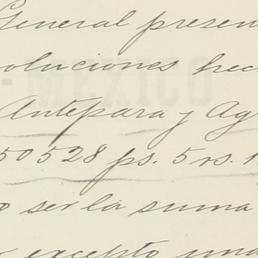 General presen
oluciones hec
Antepara y Ag
50528 ps. 5 rs. 1
o ser la suma
excepto una